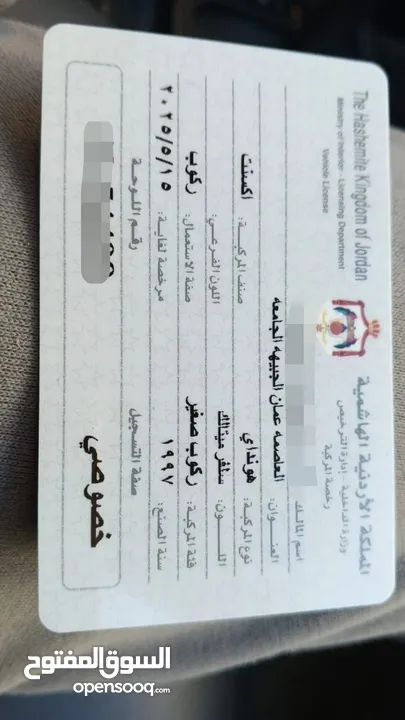 The Hashemite Kingdom of Jordan
Ministry of Interior - Licensing Department
Vehicle License
المملكة الأردنية الهاشمية
وزارة الداخلية - إدارة الترخيص
رخصة المركبة
اسم المالك
العنوان: العاصمه عمان الجبيهه الجامعه
نوع المركبة: هونداي صنف المركبة: اكسنت
اللون: سلفر ميتالك اللون الفرعي:
فئة المركبة: ركوب صغير صفة الاستعمال: ركوب
سنة الصنع: ١٩٩٧ مرخصة لغاية: ٢٠٢٥/٥/١٥
صفة التسجيل رقم اللوحة
خصوصي
السوق المفتوح
opensooq.com